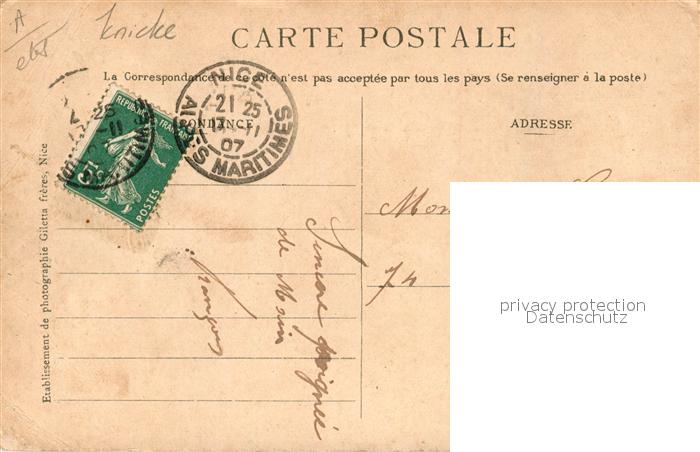 A
et
Knicke
CARTE POSTALE
La Correspondance de ce côté n'est pas acceptée par tous les pays (Se renseigner à la poste)
NICE
21 25
13 - 11
07
ALPES MARITIMES
25
11
REPUBLIQUE FRANÇAISE
5c
POSTES
ONDANCE
ADRESSE
Etablissement de photographie Giletta frères, Nice
Sincère poignée
de Main
François
Mon
74
privacy protection
Datenschutz